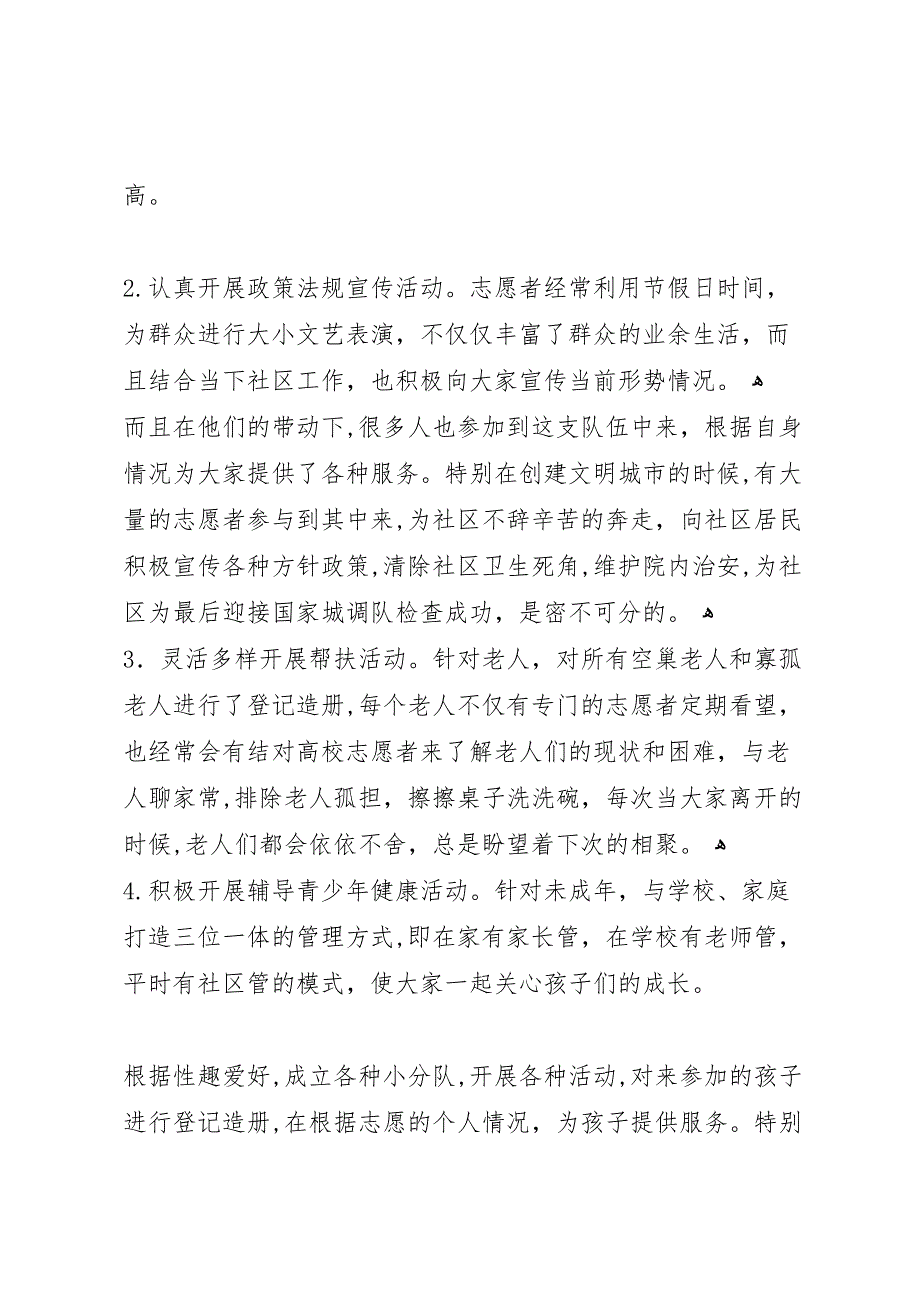 高。
2.认真开展政策法规宣传活动。志愿者经常利用节假日时间，
为群众进行大小文艺表演，不仅仅丰富了群众的业余生活，而
且结合当下社区工作，也积极向大家宣传当前形势情况。 ﻫ
而且在他们的带动下,很多人也参加到这支队伍中来，根据自身
情况为大家提供了各种服务。特别在创建文明城市的时候,有大
量的志愿者参与到其中来,为社区不辞辛苦的奔走，向社区居民
积极宣传各种方针政策,清除社区卫生死角,维护院内治安,为社
区为最后迎接国家城调队检查成功，是密不可分的。 ﻫ
3．灵活多样开展帮扶活动。针对老人，对所有空巢老人和寡孤
老人进行了登记造册,每个老人不仅有专门的志愿者定期看望，
也经常会有结对高校志愿者来了解老人们的现状和困难，与老
人聊家常,排除老人孤担，擦擦桌子洗洗碗，每次当大家离开的
时候,老人们都会依依不舍，总是盼望着下次的相聚。 ﻫ
4.积极开展辅导青少年健康活动。针对未成年，与学校、家庭
打造三位一体的管理方式,即在家有家长管，在学校有老师管，
平时有社区管的模式，使大家一起关心孩子们的成长。
根据性趣爱好,成立各种小分队,开展各种活动,对来参加的孩子
进行登记造册,在根据志愿的个人情况，为孩子提供服务。特别